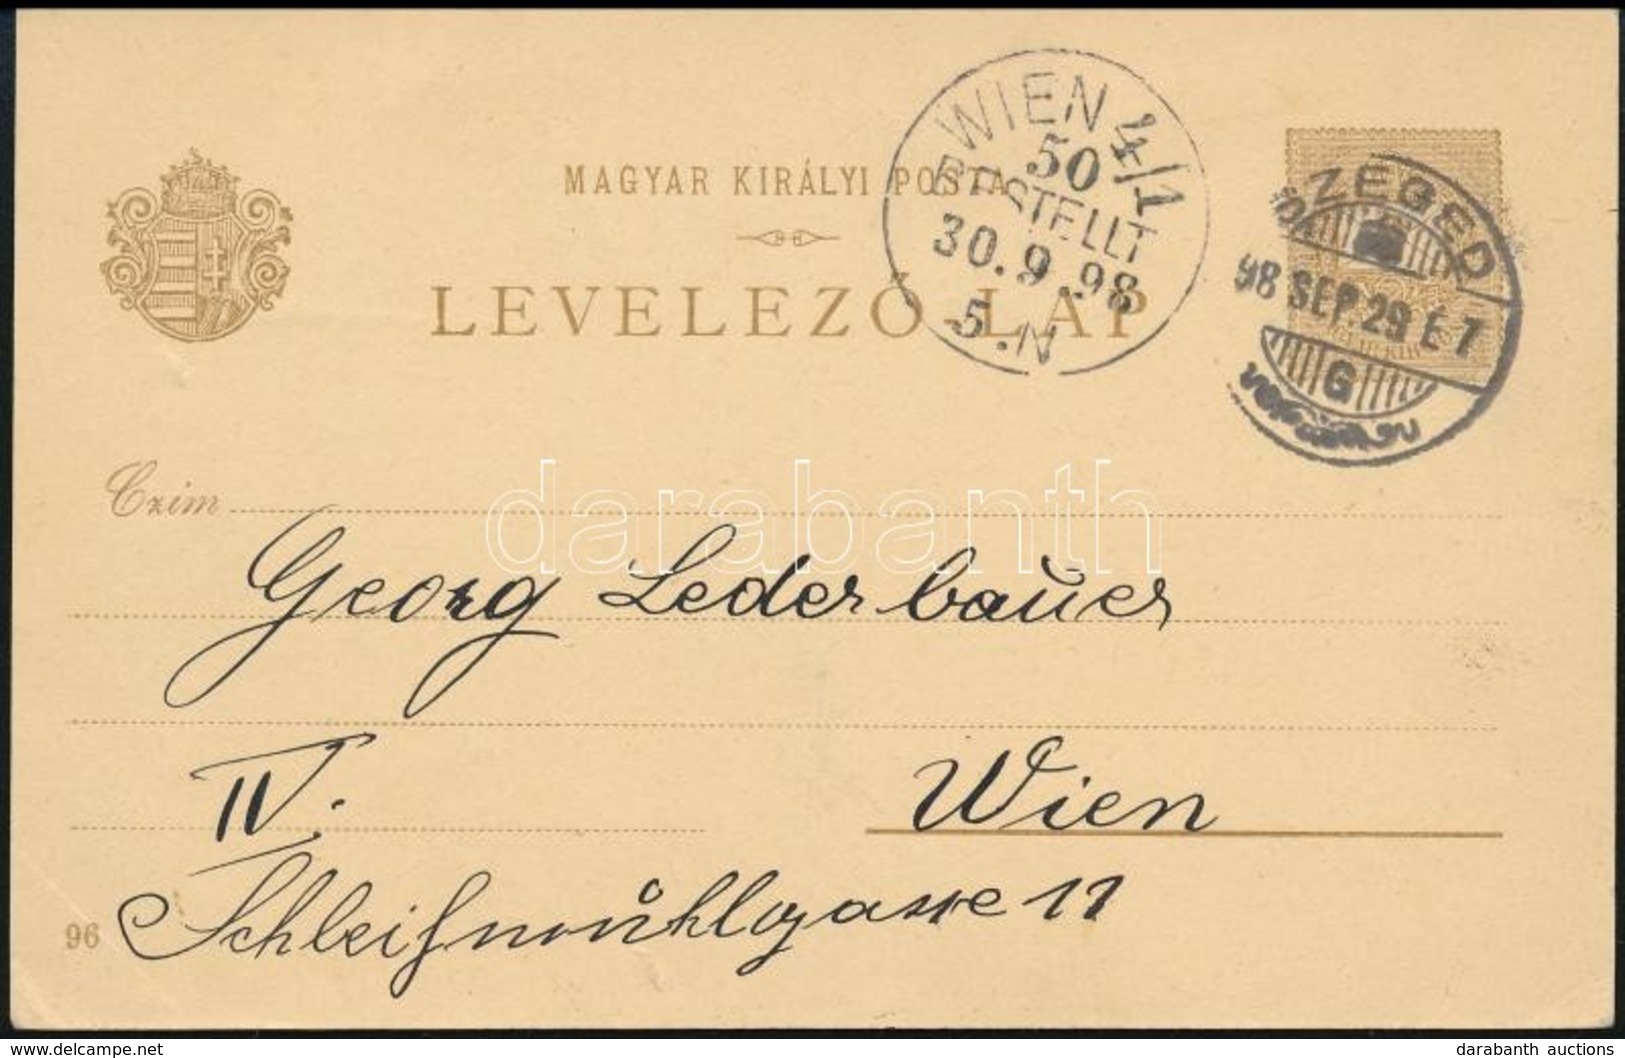 MAGYAR KIRÁLYI POSTA
LEVELEZŐ-LAP
WIEN 4/1
50
BESTELLT
30.9.98
5.N
SZEGED
98 SEP.29 É 7
G
Czim
darabanth
Georg Lederbauer
IV.
Wien
Schleifmühlgasse 11
96
delcampe.net
darabanth auctions